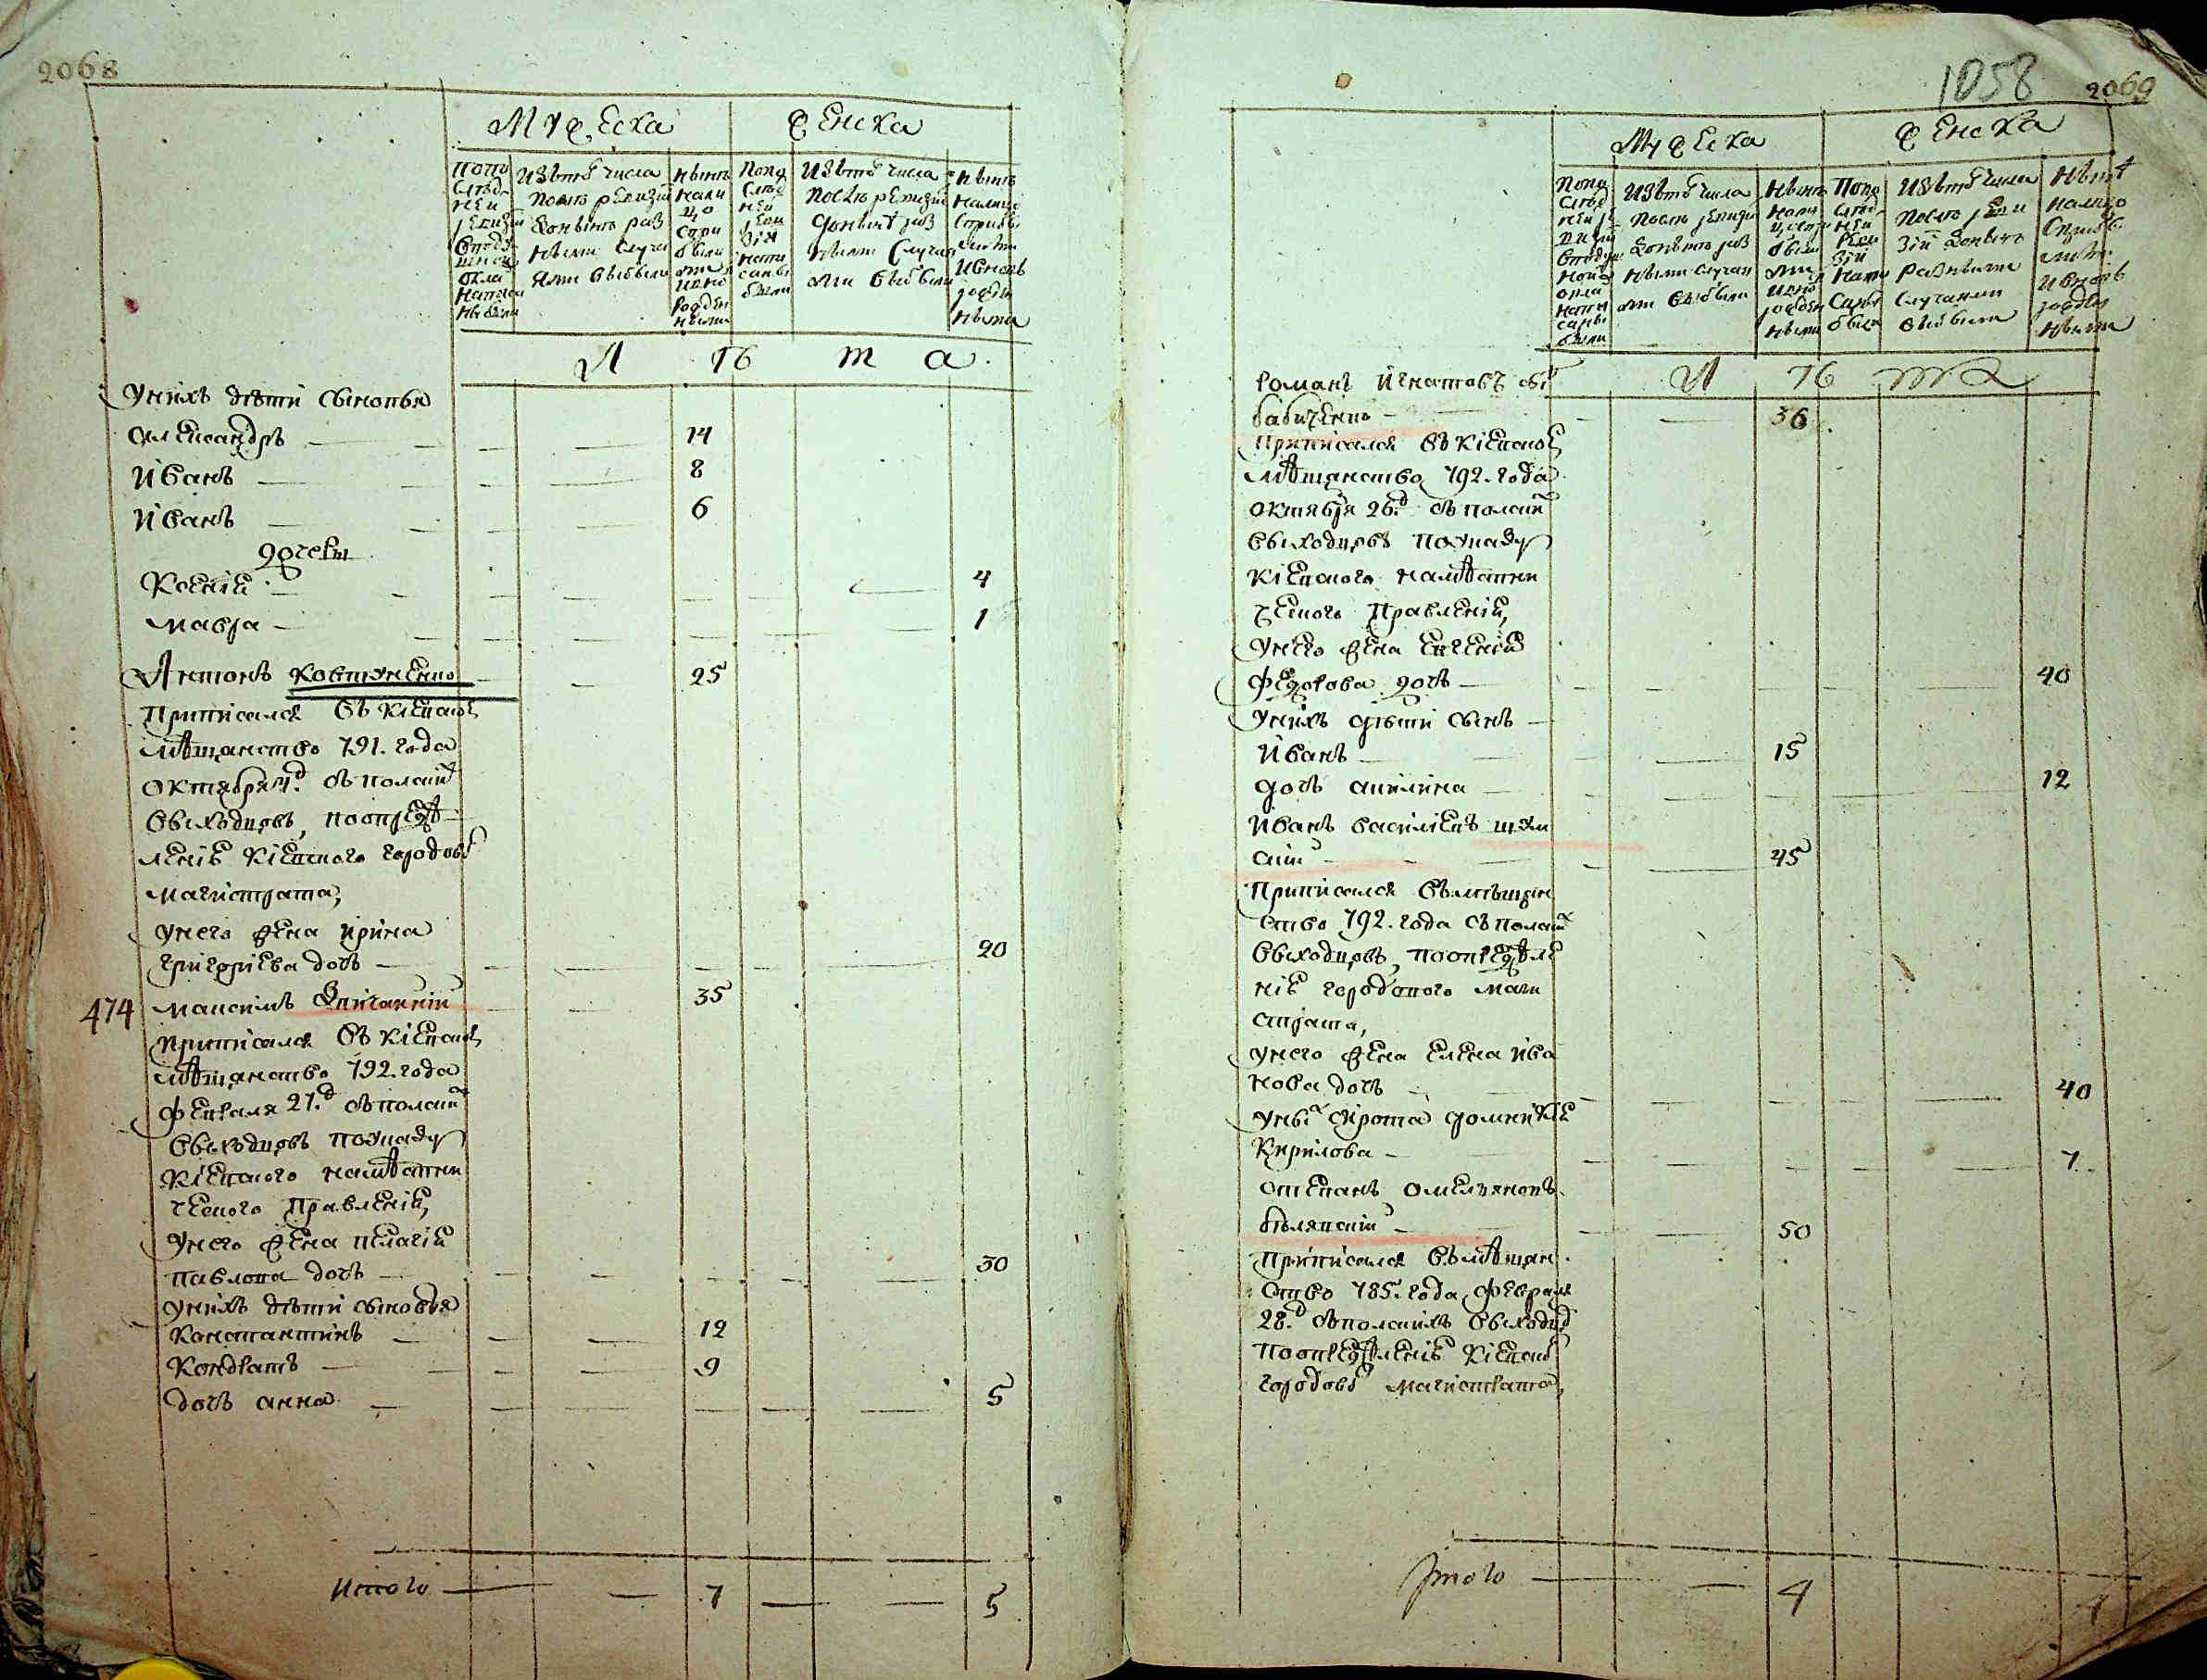 2068
Мужеска
Женска
По по
следней
ревизии
в подушном
окладе
написаны
были
Из того числа
после ревизии
до ныне раз
ными случа
ями выбыли
Ныне
нали
цо
с при
былы
ми
и вно
рожден
ными
По по
след
ней
реви
зии
напи
саны
были
Из того числа
после ревизии
до ныне раз
ными случа
ями выбыли
Ныне
налицо
с прибы
лыми
и вновь
рожден
ными
Л ѣ т а
У нихъ дѣти сыновья
Александръ 14
Иванъ 8
Иванъ 6
дочеры
Ксенія 4
Мавра 1
Антонъ Ковтуненко 25
Приписался въ кіевское
мѣщанство 791. года
октября 4.д съ полски
выходцовъ, по опредѣ
ленію кіевского городов
магистрата,
у него жена Ирина
Григориева дочь 20
474 Максимъ 35
Приписался въ кіевское
мѣщанство 792. года
февраля 27.д съ полски
выходцовъ по указу
кіевского намѣстни
ческого правленія,
у него жена Пелагія
Павлова дочь 30
У нихъ дѣти сыновья
Константинъ 12
Кондратъ 9
дочь Анна 5
Итого 7 5
1058
2069
Мужеска
Женска
По по
след
ней ре
визии
в подуш
ном
окла
напи
саны
были
Из того числа
после ревизии
до ныне раз
ными случа
ями выбыли
Ныне
нали
цо с при
былы
ми
и вно
рожден
ными
По по
след
ней
реви
зии
напи
саны
были
Из того числа
после реви
зии до ныне
разными
случаями
выбыли
Ныне
налицо
с прибы
лыми
и вновь
рожден
ными
Л ѣ т а
Романъ Игнатовъ сы
Бабиченко 36
Приписался въ кіевское
мѣщанство 792. года
октября 26.д съ полски
выходцовъ по указу
кіевского намѣстни
ческого правленія,
у него жена Евгенія
Федорова дочь 40
У нихъ дѣти сынъ
Иванъ 15
дочь Акилина 12
Иванъ Василіевъ
45
Приписался въ мѣщан
ство 792. года съ полски
выходцовъ, по опредѣле
нію городского маги
страта,
у него жена Елена Ива
нова дочь 40
У ны сирота Домникіе
Кирилова 7
Степанъ Омеляновъ
Бѣлявскій 50
Приписался въ мѣщан
ство 785. года, февраля
28.д съ полскихъ выходц
по опредѣленію кіевск
городов магистрата,
Итого 4 4